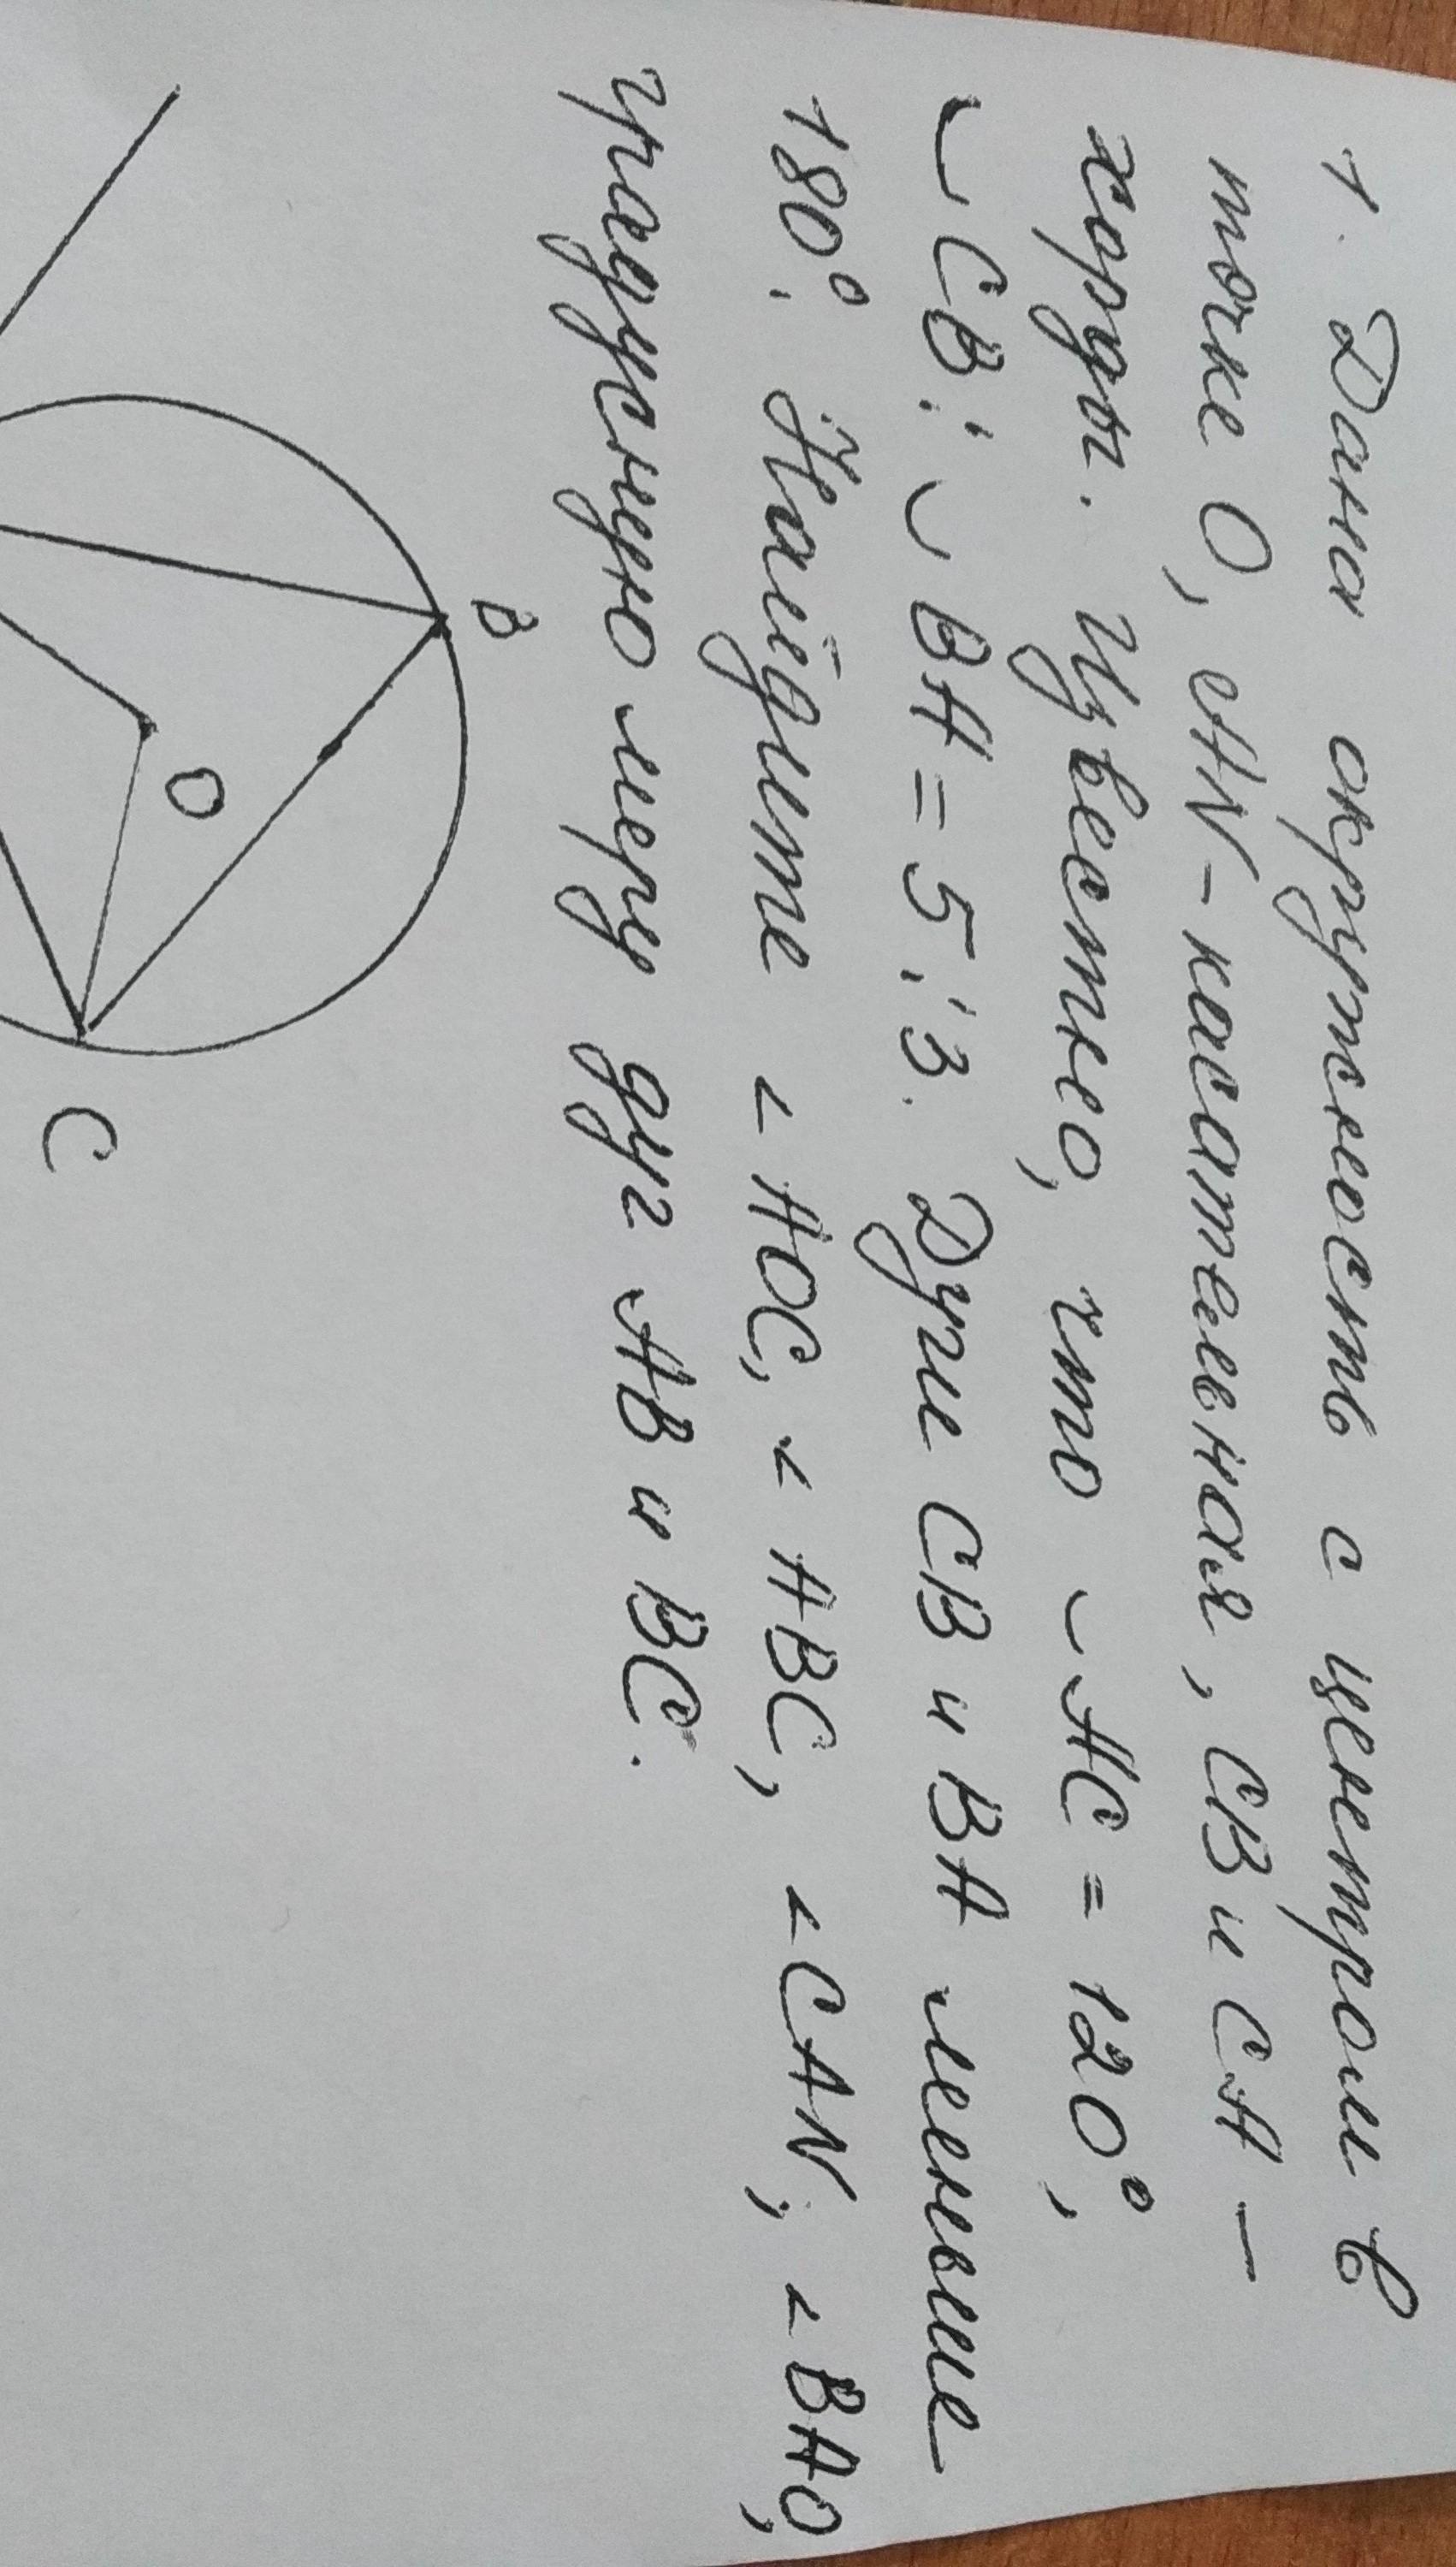 1. Дана окружность с центром в
точке O, AN - касательная, CB и CA -
хорды. Известно, что ◡AC = 120°,
◡CB : ◡BA = 5 : 3. Дуги CB и BA меньше
180°. Найдите ∠AOC, ∠ABC, ∠CAN, ∠BAO,
градусную меру дуг AB и BC.
B
O
C